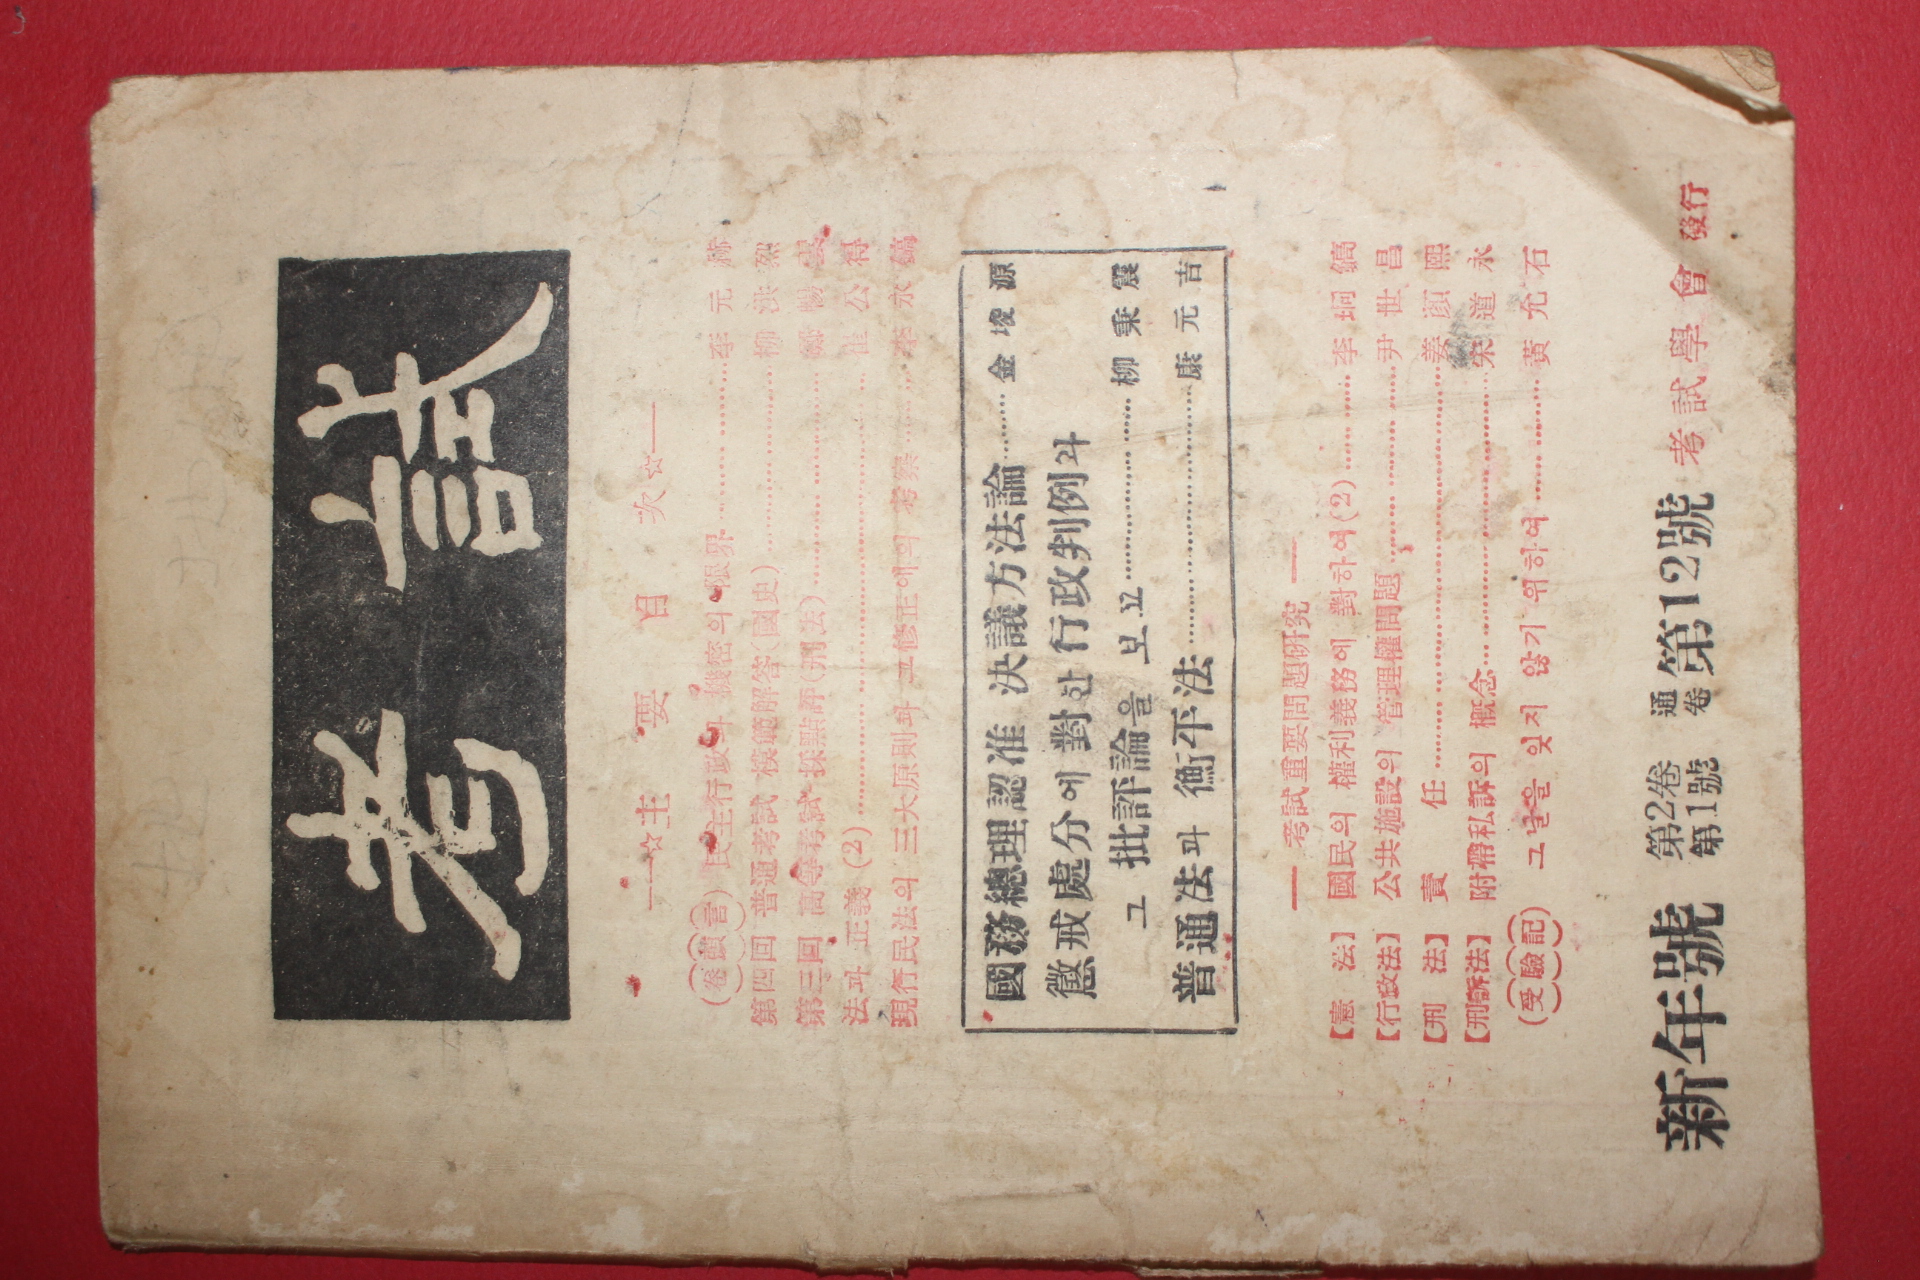 考試
—☆主要目次☆—
(卷頭言) 民主行政과 機密의 限界……………李元赫
第四回 普通考試 模範解答(國史)……………柳洪烈
第三回 高等考試 採點評(刑法)……………鄭暢雲
法과 正義 (2)……………崔公得
現行民法의 三大原則과 그修正에의 考察………李永鎬
國務總理認准 決議方法論………金埈源
懲戒處分에 對한 行政判例과
그 批評論을 보고……………柳秉震
普通法과 衡平法……………康元吉
— 考試重要問題研究 —
【憲法】 國民의 權利義務에 對하여(2)…………李坰鎬
【行政法】 公共施設의 管理權問題……………尹世昌
【刑法】 責任……………姜顔熙
【刑訴法】 附帶私訴의 概念……………宋道永
(受驗記) 그날을 잊지 않기 위하여…………黃允石
新年號 第2卷 第1號 通卷 第12號 考試學會 發行